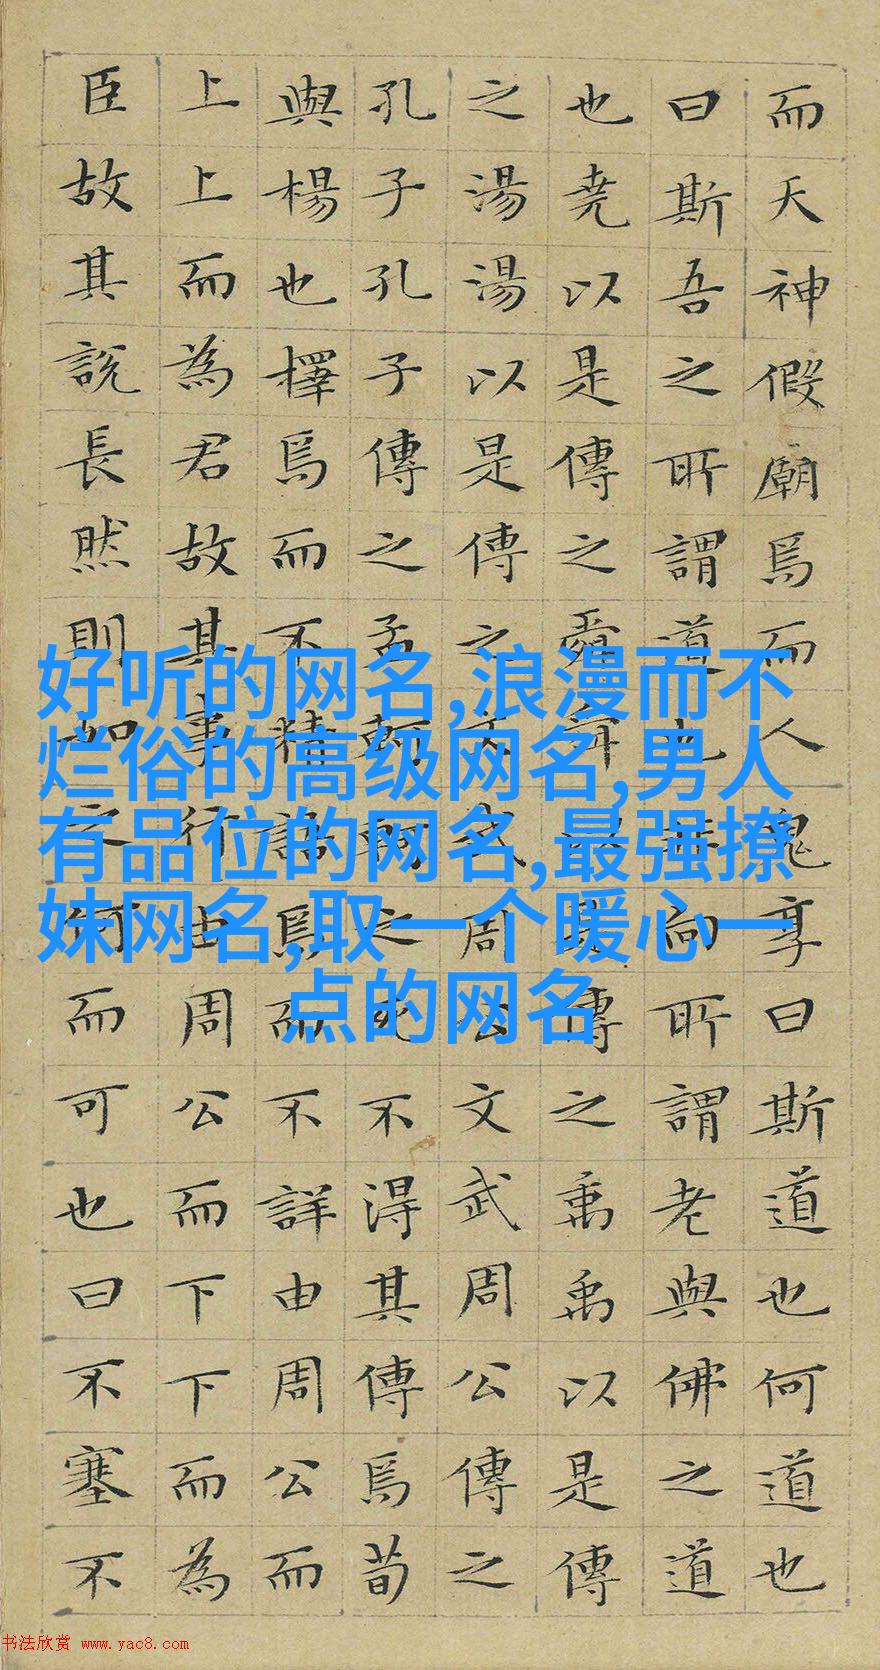 而天神假廟焉而人鬼享曰斯道也何道也
曰斯吾之所謂道也非向所謂老與佛之道
也堯以是傳之舜舜以是傳之禹禹以是傳
之湯湯以是傳之文武周公文武周公傳之
孔子孔子傳之孟軻軻之死不得其傳焉荀
與楊也擇焉而不精語焉而不詳由周公而
上上而為君故其事行由周公而下下而為
臣故其說長然則如之何而可也曰不塞不
好听的网名,浪漫而不
烂俗的高级网名,男人
有品位的网名,最强撩
妹网名,取一个暖心一
点的网名
书法欣赏 www.yac8.com